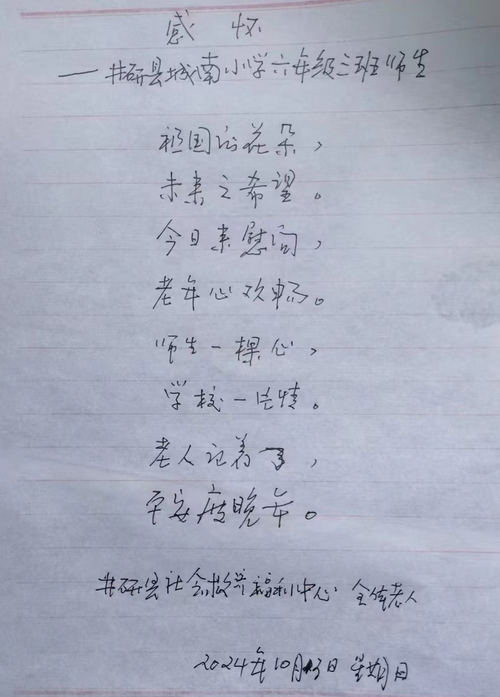 感怀
——井研县城南小学六年级三班师生
祖国的花朵，
未来之希望。
今日来慰问，
老年心欢畅。
师生一棵心，
学校一片情。
老人记着了，
平安度晚年。
井研县社会救济福利中心 全体老人
2024年10月13日 星期日